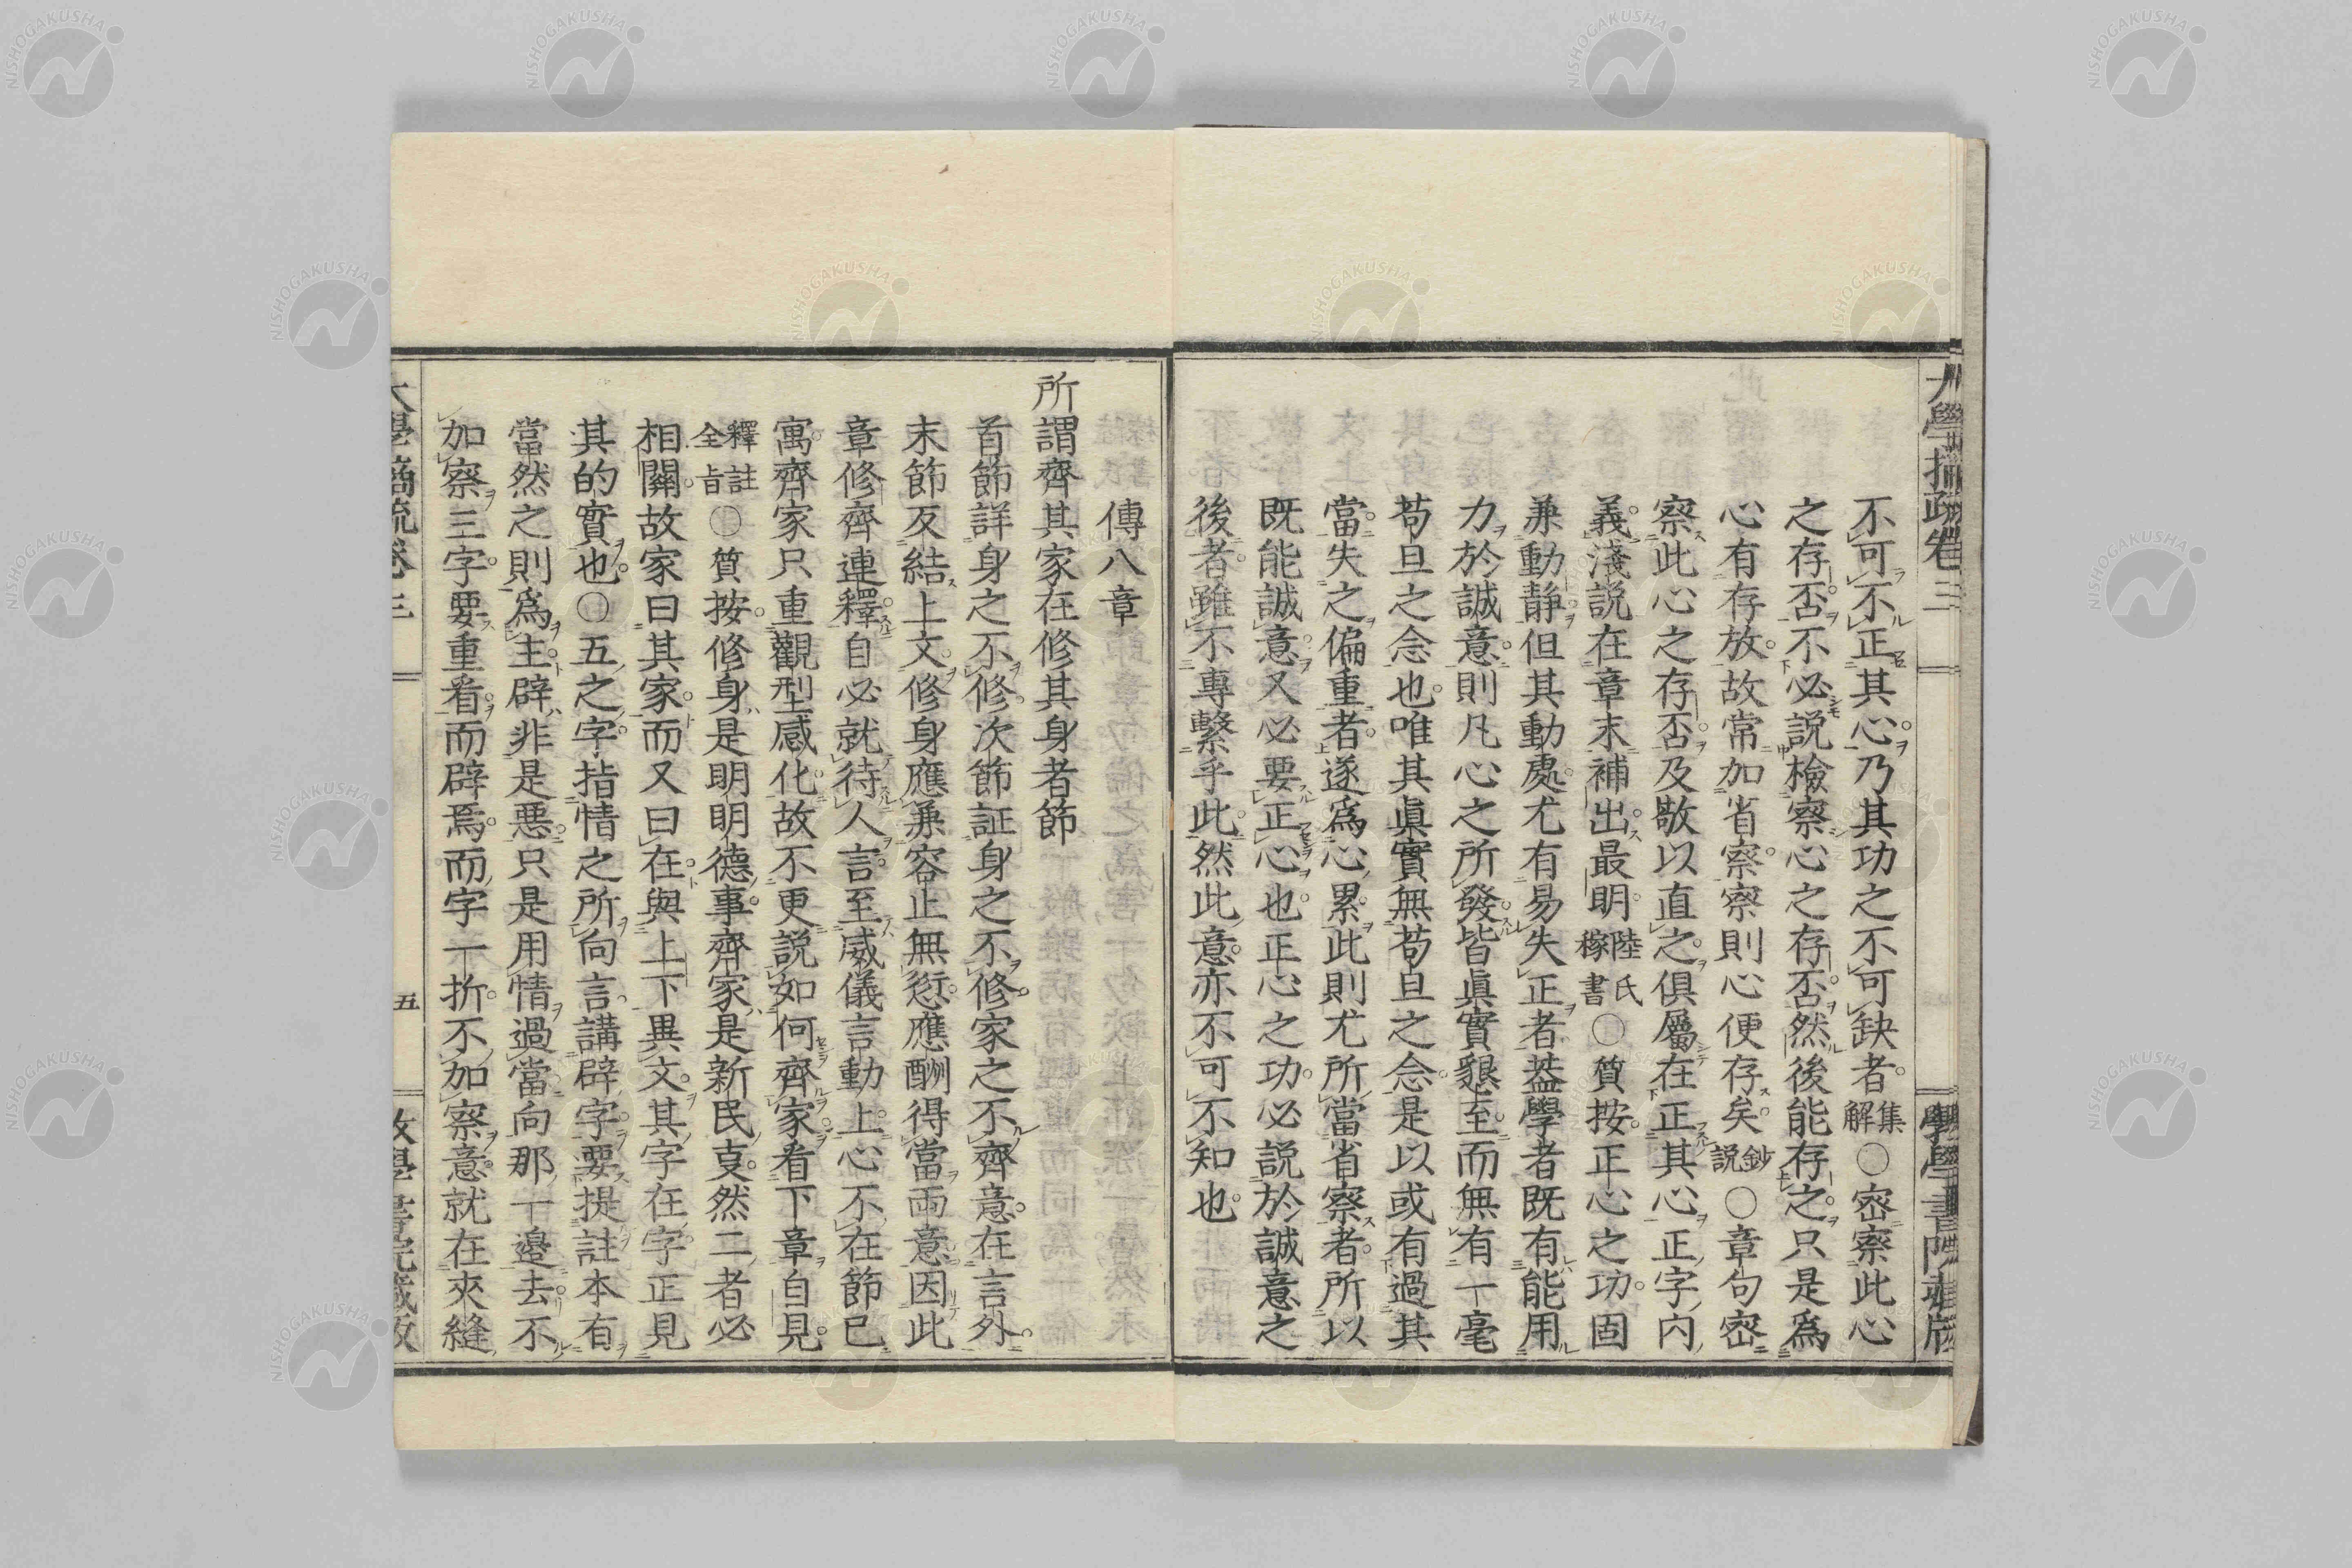 不可不正其心乃其功之不可缺者集解〇密察此心
之存否不必説檢察心之存否然後能存之只是爲
心有存放故常加省察察則心便存矣鈔説〇章句密
察此心之存否及敬以直之俱屬在正其心正字内
義淺説在章末補出最明陸氏稼書〇質按正心之功固
兼動靜但其動處尤有易失正者葢學者既有能用
力於誠意則凡心之所發皆眞實懇至而無有一毫
苟且之念也唯其眞實無苟且之念是以或有過其
當失之偏重者遂爲心累此則尤所當省察者所以
既能誠意又必要正心也正心之功必説於誠意之
後者雖不專繫乎此然此意亦不可不知也
傳八章
所謂齊其家在修其身者節
首節詳身之不修次節証身之不修家之不齊意在言外
末節反結上文修身應兼容止無愆應酬得當兩意因此
章修齊連釋自必就待人言至威儀言動上心不在節已
寓齊家只重觀型感化故不更説如何齊家看下章自見
釋註全旨〇質按修身是明明德事齊家是新民叓然二者必
相關故家曰其家而又曰在與上下異文其字在字正見
其的實也〇五之字指情之所向言講辟字要提註本有
當然之則爲主辟非是惡只是用情過當向那一邉去不
加察三字要重看而辟焉而字一折不加察意就在夾縫
五